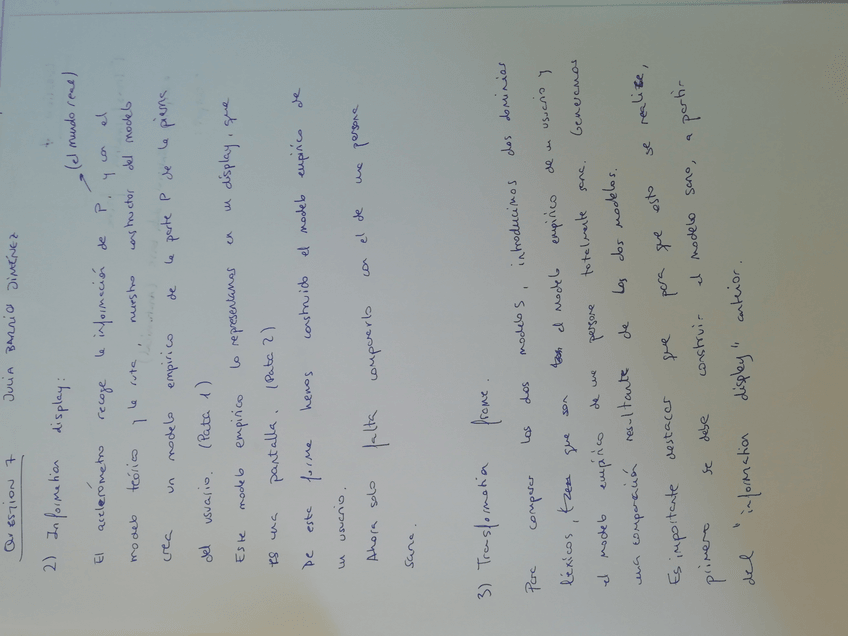 QUESTION 7 JULIA BARRIO JIMÉNEZ
2) Information display:
→ (el mundo real)
El acelerómetro recoge la información de P, y con el
modelo teórico y la ruta, nuestro constructor del modelo
crea un modelo empírico de la parte P de la pierna
del usuario. (Pata 1)
Este modelo empírico lo representamos en un display, que
es una pantalla. (Pata 2)
De esta forma hemos construido el modelo empírico de
un usuario.
Ahora solo falta compararlo con el de una persona
sana.
3) Transformation frame.
Para comparar los dos modelos, introducimos dos dominios
léxicos, que son el modelo empírico de un usuario y
el modelo empírico de una persona totalmente sana. Generamos
una comparación resultante de los dos modelos.
Es importante destacar que para que esto se realize,
primero se debe construir el modelo sano, a partir
del "information display" anterior.